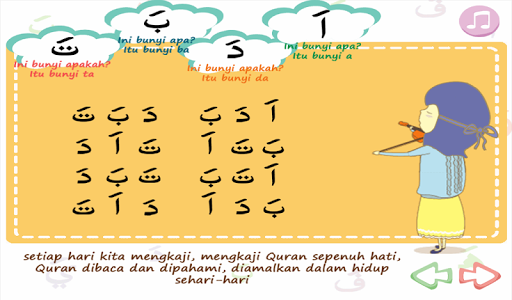 اَ
Ini bunyi apa?
Itu bunyi a
دَ
Ini bunyi apakah?
Itu bunyi da
بَ
Ini bunyi apa?
Itu bunyi ba
تَ
Ini bunyi apakah?
Itu bunyi ta
اَ دَ بَ دَ بَ تَ
بَ تَ اَ تَ اَ دَ
اَ تَ بَ تَ بَ دَ
بَ دَ اَ دَ اَ تَ
setiap hari kita mengkaji, mengkaji Quran sepenuh hati,
Quran dibaca dan dipahami, diamalkan dalam hidup
sehari-hari